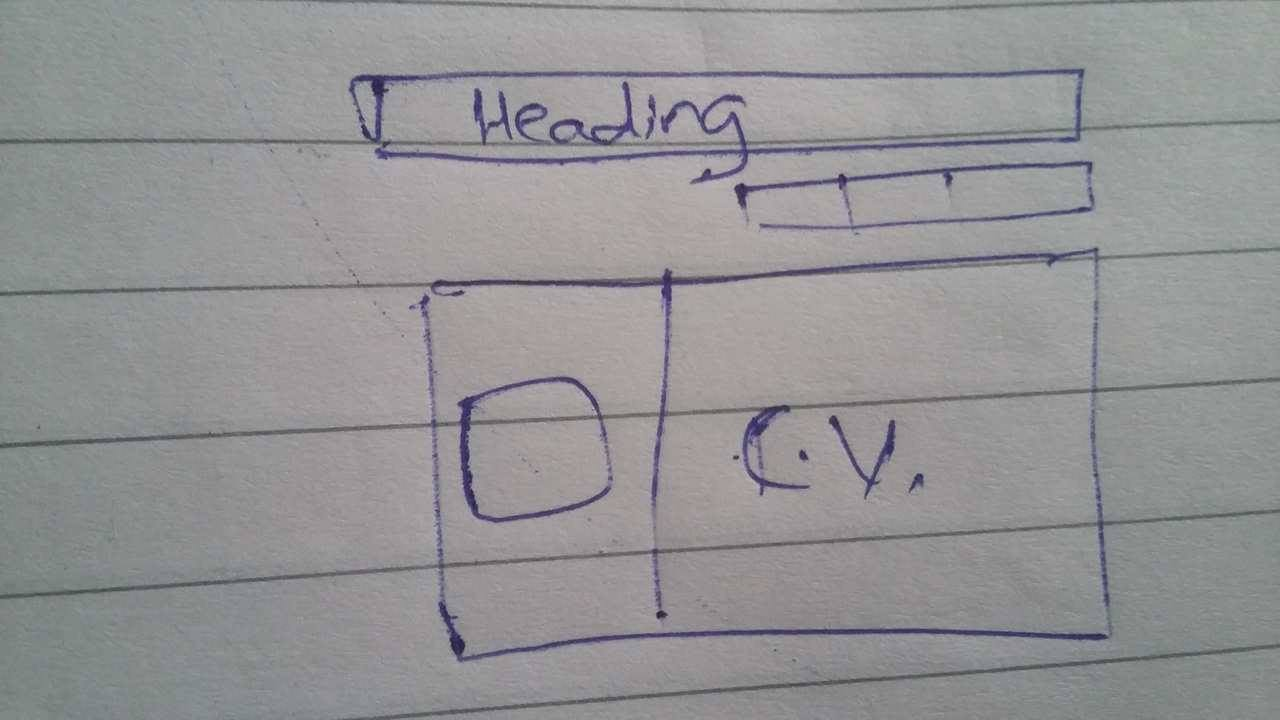 Heading
C.V.